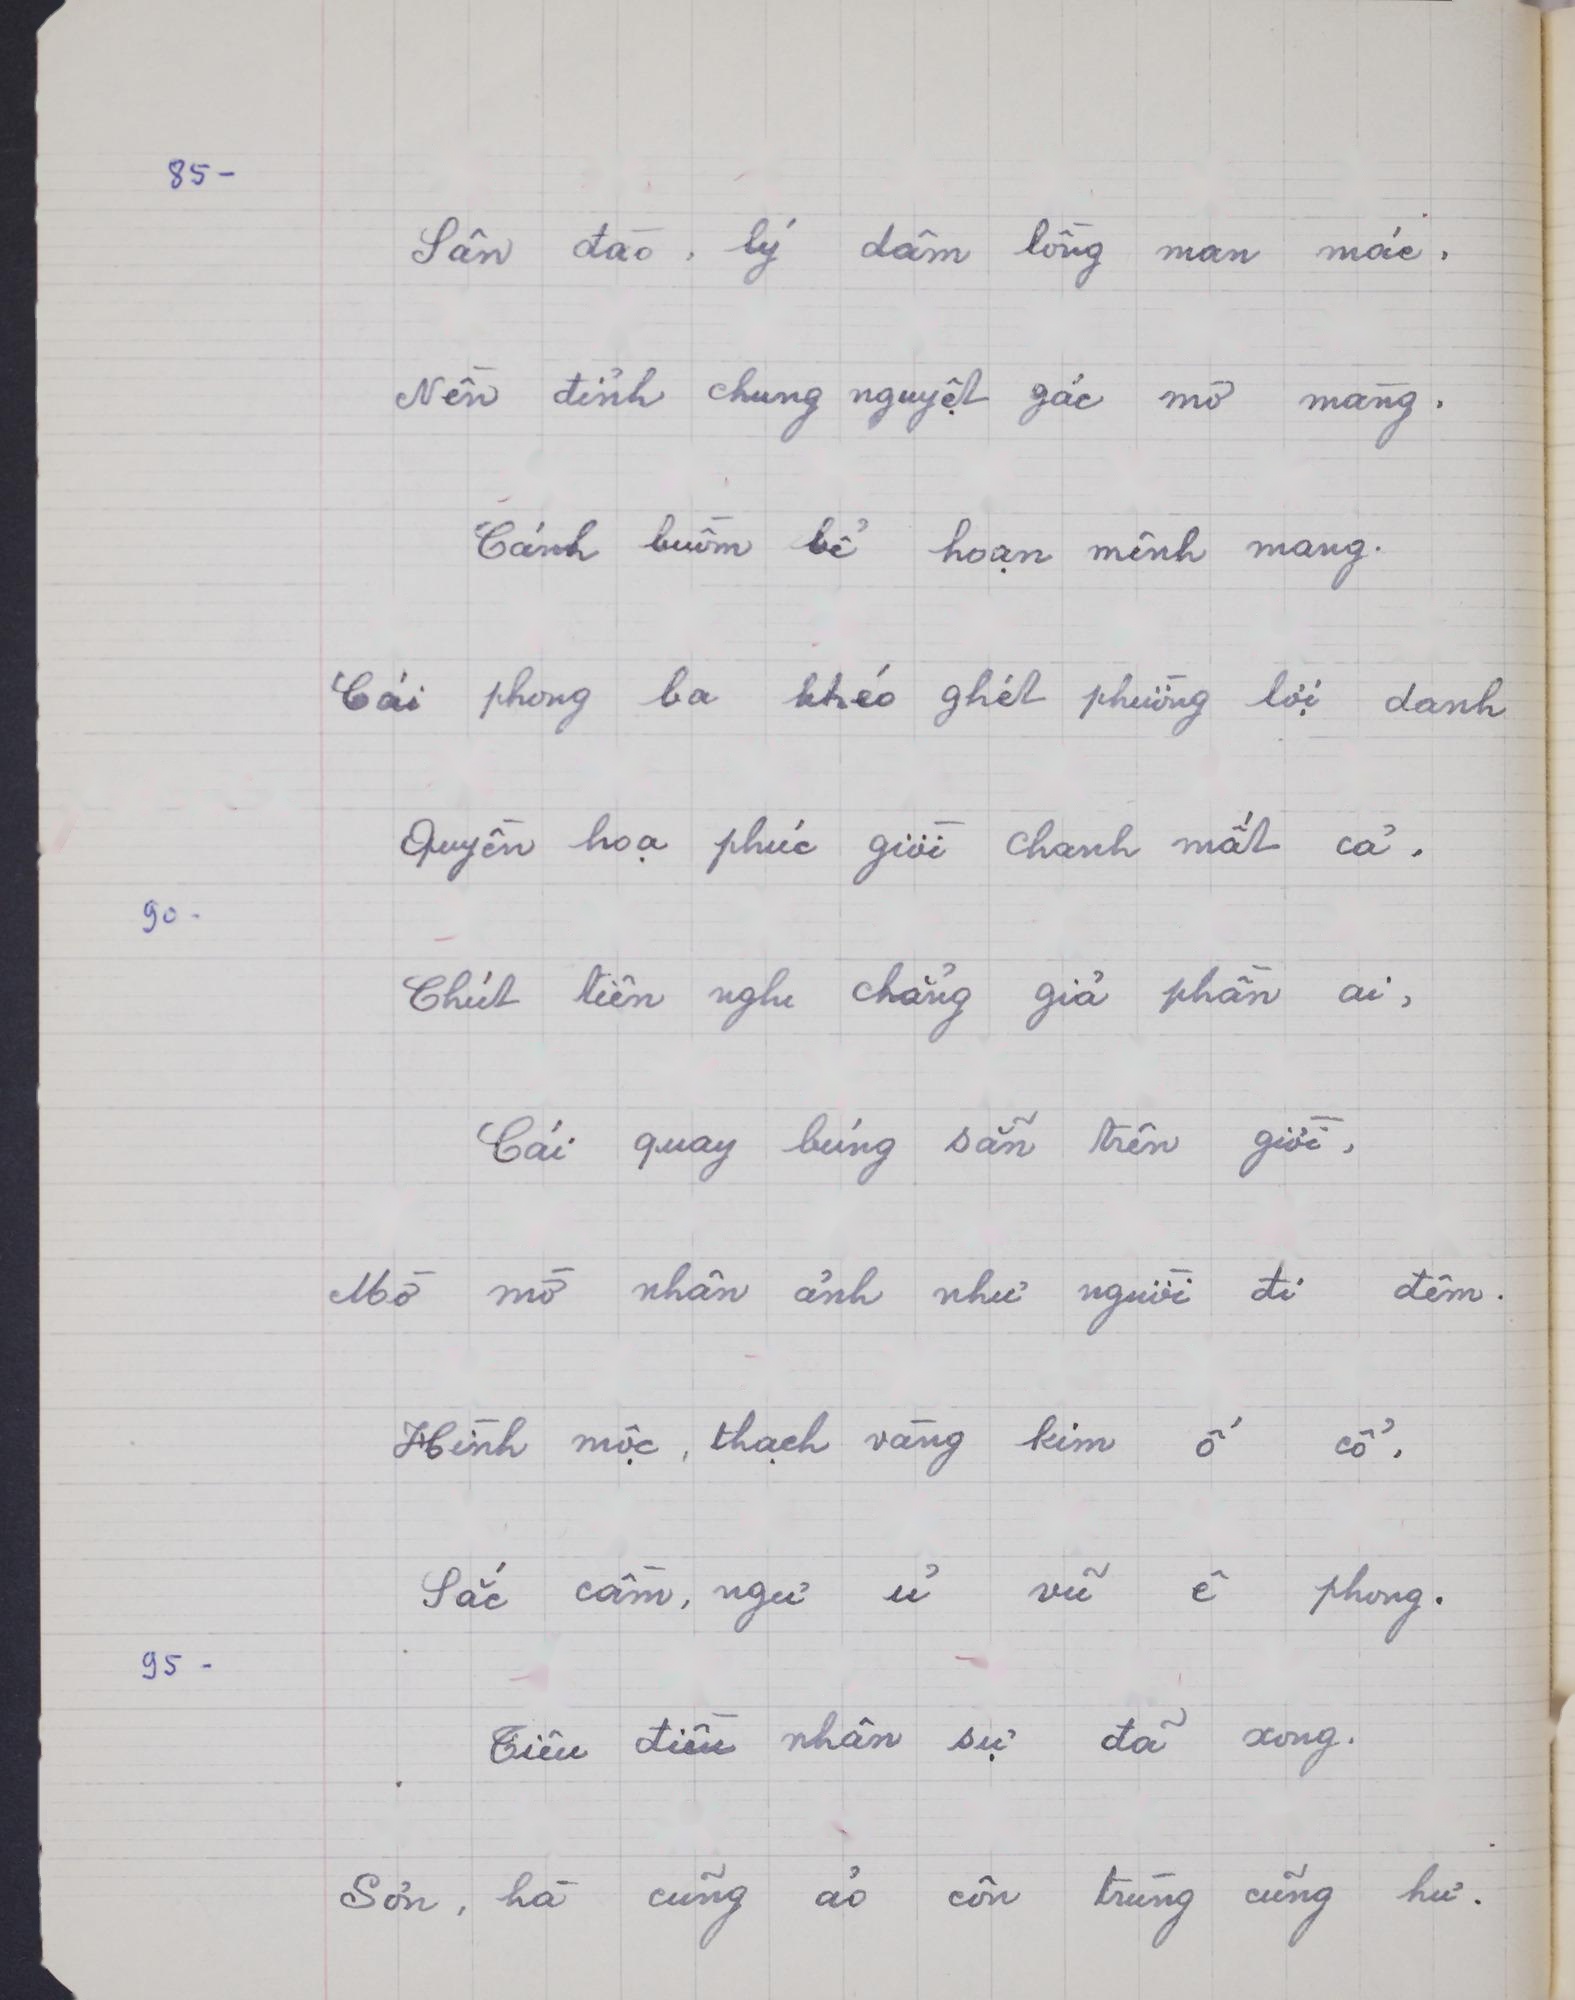 85-
Sân đào, lý dâm lồng man mác,
Nền đỉnh chung nguyệt gác mơ màng,
Cánh buồm bể hoạn mênh mang.
Cái phong ba khéo ghét phường lợi danh
Quyền hoạ phúc giời chanh mất cả,
90-
Chút tiên nghi chẳng giả phần ai,
Cái quay búng sẵn trên giời,
Mờ mờ nhân ảnh như người đi đêm.
Hình mộc, thạch vàng kim ố cổ,
Sắc cầm, ngư ủ vũ ê phong.
95-
Tiêu điều nhân sự đã xong.
Sơn, hà cũng ảo côn trùng cũng hư.